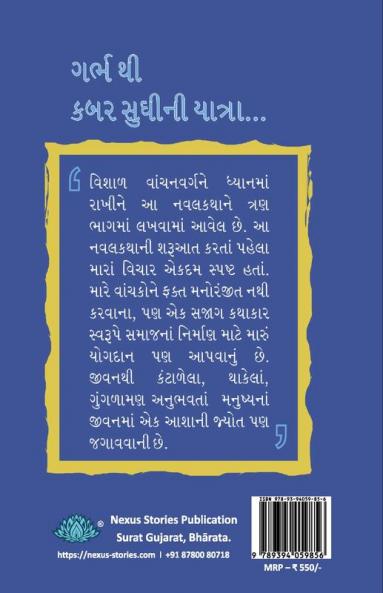 ગર્ભ થી
કબર સુધીની યાત્રા...
વિશાળ વાંચનવર્ગને ધ્યાનમાં
રાખીને આ નવલકથાને ત્રણ
ભાગમાં લખવામાં આવેલ છે. આ
નવલકથાની શરૂઆત કરતાં પહેલા
મારાં વિચાર એકદમ સ્પષ્ટ હતાં.
મારે વાંચકોને ફક્ત મનોરંજીત નથી
કરવાના, પણ એક સજાગ કથાકાર
સ્વરૂપે સમાજનાં નિર્માણ માટે મારું
યોગદાન પણ આપવાનું છે.
જીવનથી કંટાળેલા, થાકેલાં,
ગુંગળામણ અનુભવતાં મનુષ્યનાં
જીવનમાં એક આશાની જ્યોત પણ
જગાવવાની છે.
ISBN 978-93-94059-85-6
9 789394 059856
MRP – ₹ 550/-
® Nexus Stories Publication
Surat Gujarat, Bhārata.
https://nexus-stories.com | +91 87800 80718